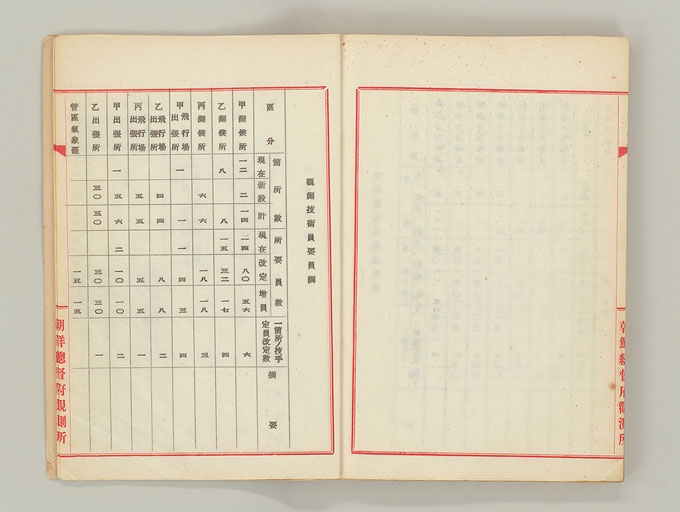 朝鮮總督府觀測所
觀測技術員要員調
區分 箇所數 所要員數 一箇所ノ技手定員改定數 摘要
現在 新設 計 現在 改定 增員
甲測候所 一二 二 一四 二四 八〇 五六 六
乙測候所 八 八 一五 三二 一七 四
丙測候所 六 六 一八 一八 三
飛行場甲出張所 一 一 一 四 三 四
飛行場乙出張所 四 四 八 八 二
飛行場丙出張所 五 五 五 五 一
甲出張所 一 五 六 二 一〇 一〇 二
乙出張所 三〇 三〇 三〇 三〇 一
管區氣象臺 一五 一五
朝鮮總督府觀測所